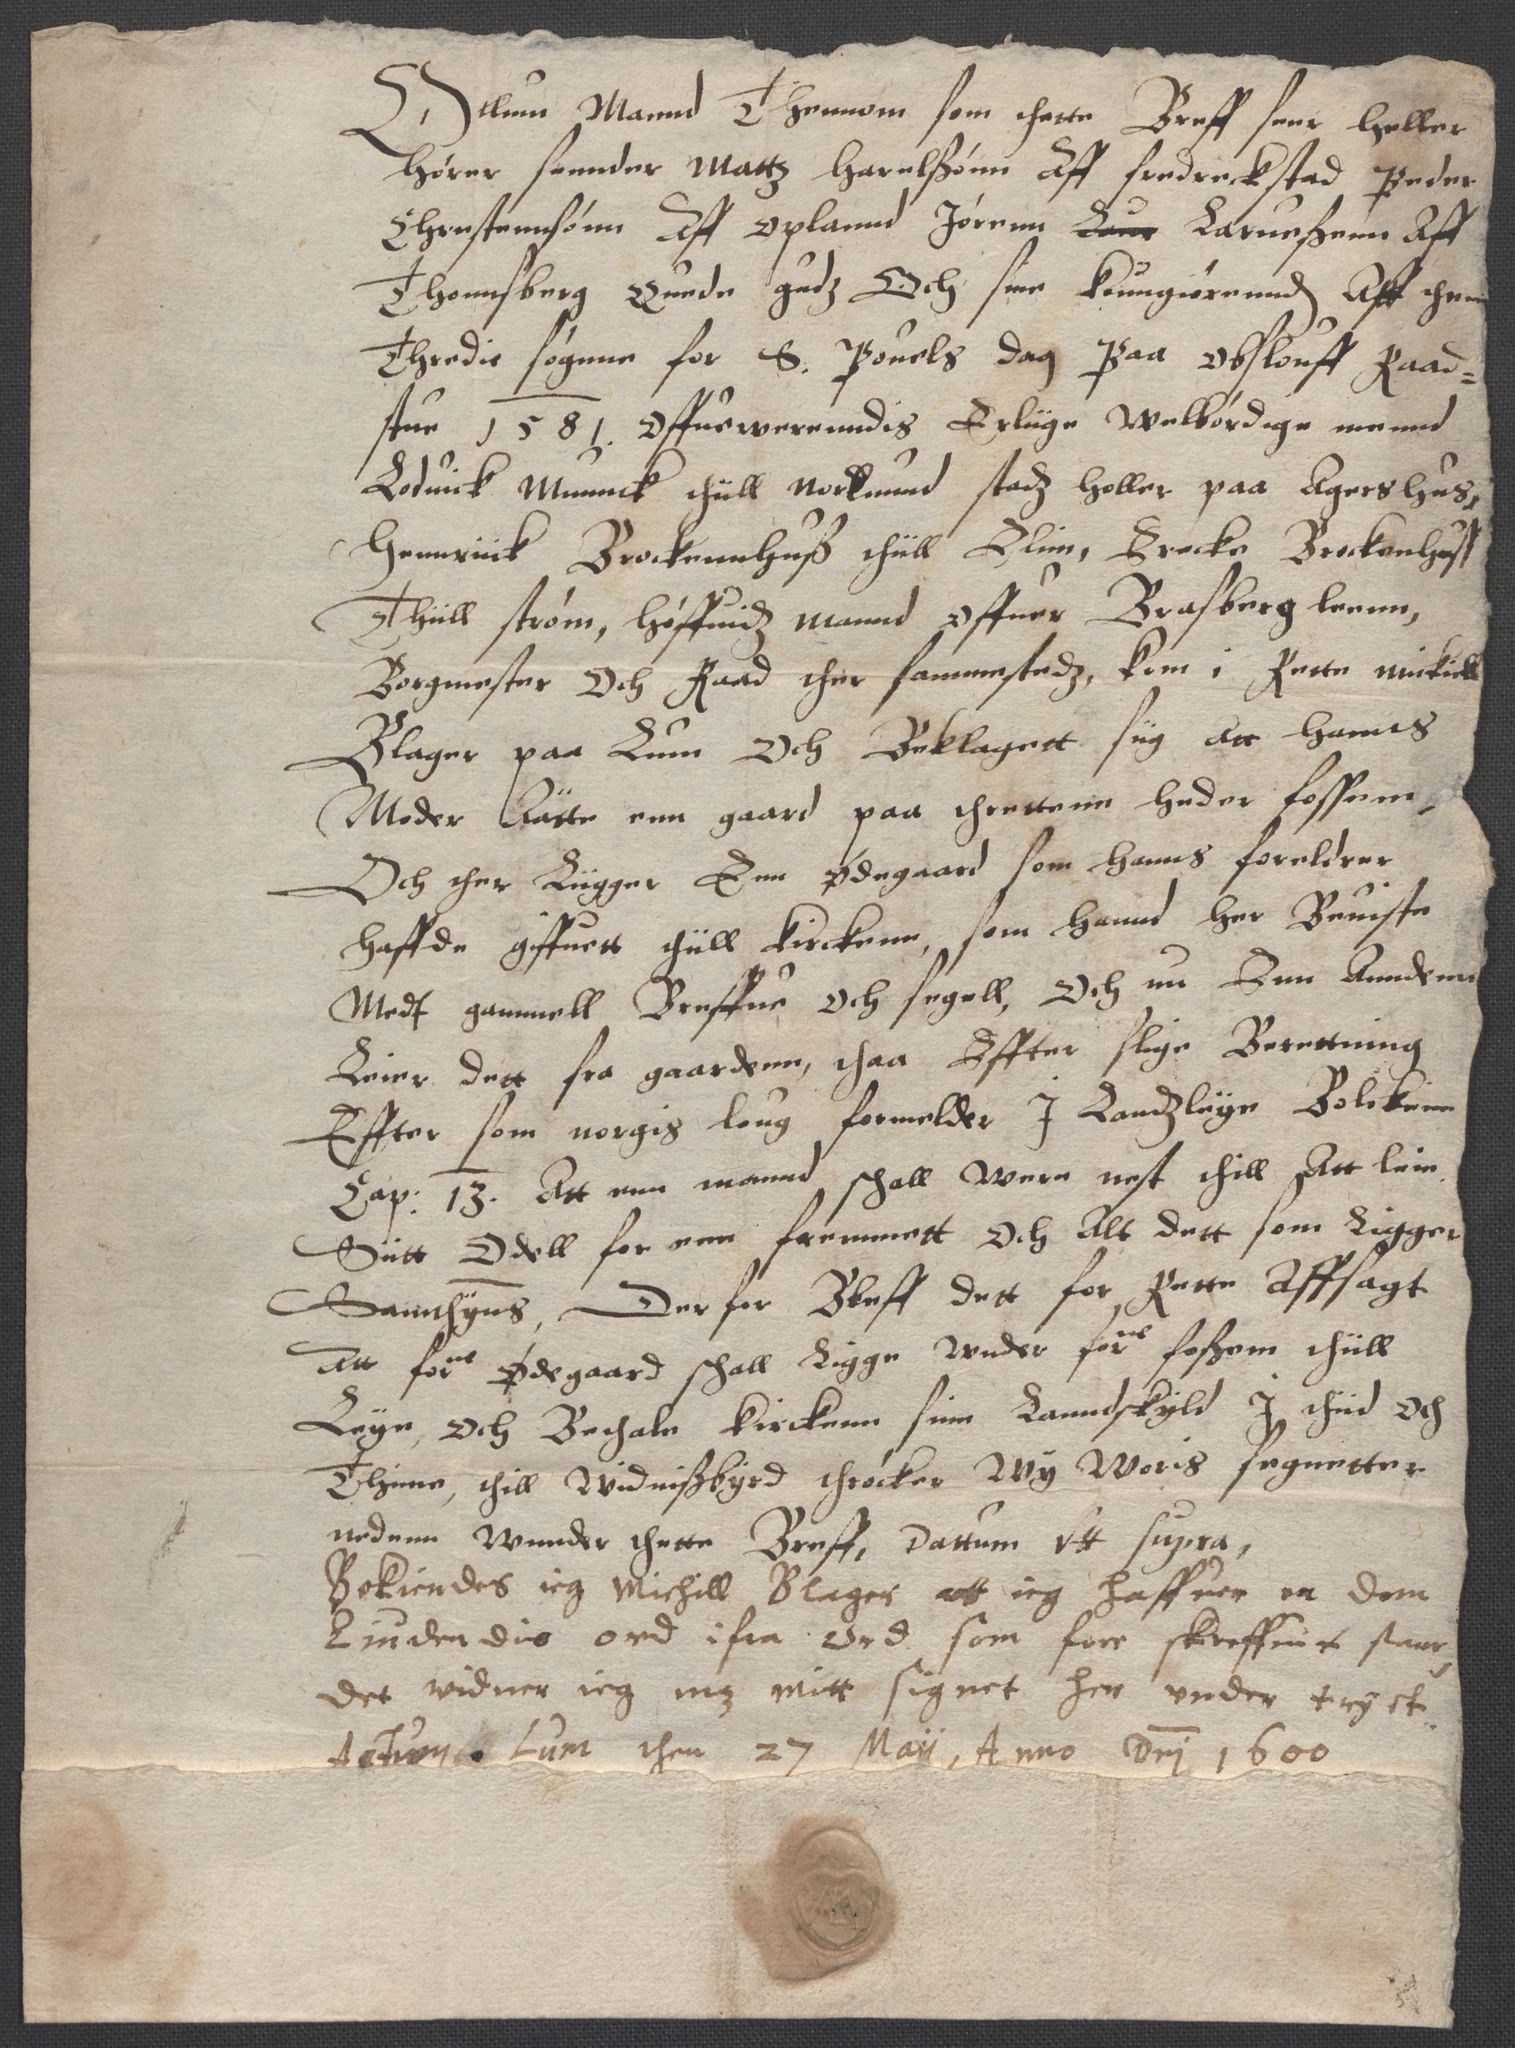 Ollum Mannd Thennom som thette Breff seer heller
hører sennder Mattz harelßønn Aff fredreckstad Peder
Chrestennsønn Aff Oplannd Jørenn Laruessenn Aff
Thonnsberg Quede gudz Och sine kunngiørenndis Aff thenn
Thredie søgnne for S. Pouels dag Paa Obslouff Raad=
stue 1581. Offuerwerenndis Erlige Welbørdige mennd
Loduick Munnck thill Norlunnd stadz holler paa Agershus,
Hennrick Brockennhuß thill Elinn, Erecke Brockenhuß
Thill strøm, høffuidz mannd offuer Brasberg leenn,
Borgmester Och Raad ther sammestedz, kom i Rette mickiell
Blager paa Lum Och Beklagett sig Att hanns
Moder Aatte enn gaard paa threttenn heder fossem,
Och ther Ligger Een Ødegaard som hanns foreldrer
haffde giffuett thill kirckenn, som hannd her Beuiste
Medt gammell Breffue och segell, Och nu Enn Anndenn
Leier dett fra gaardenn, thaa Effter slige Berettning
Effter som norgis loug formelder J Landzleye Bolckenn
Cap: 13. Att enn mannd schall were nest thill Att leie
Sitt Odell for enn fremmett Och Alt dett som Ligger
Samthyns, Derfor Bleff dett for Rette Affsagt
Att forne Ødegaard schall Ligge wnder forne foßem thill
Leye, och Bethale kirckenn sinn Lanndskyld J thiid Och
Thime, thill Widnißbyrd thrøcker Wy Woris segnetter
nedenn wnnder thette Breff, Dattum Vtt supra,
Bekiendes ieg Michill Blager att ieg haffuer en dom
Liudendis ord ifra Ord som fore skreffuit staar,
det vidner ieg mz mitt signet her vnder tryct.
Actum Lum then 27 Maij, Anno Dnj 1600